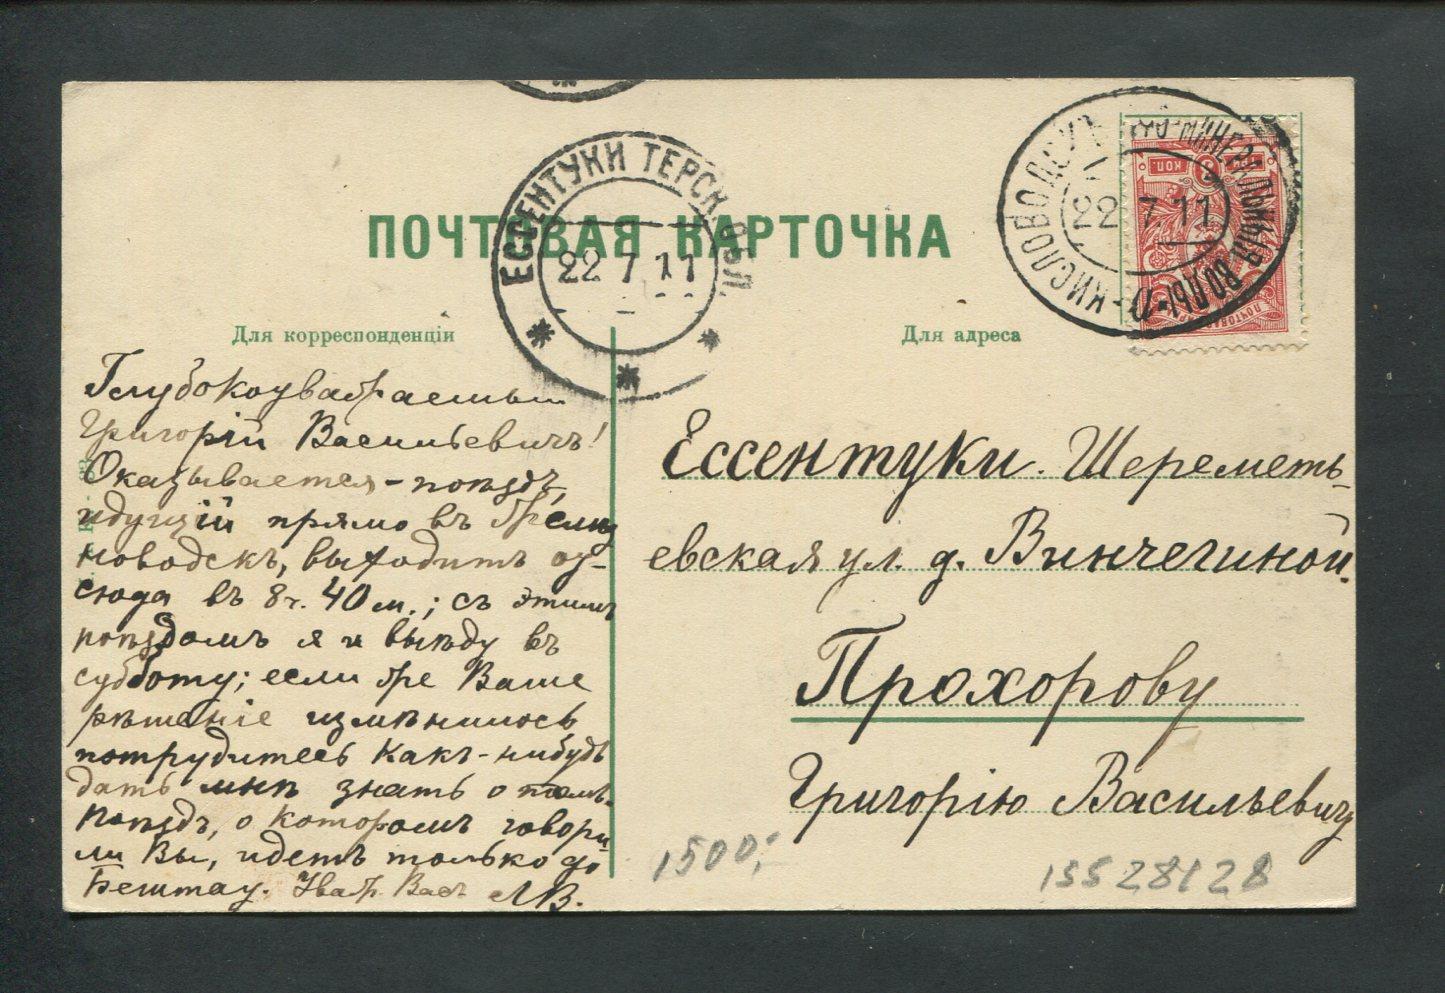 ПОЧТОВАЯ КАРТОЧКА
ЕССЕНТУКИ ТЕРСК. ОБЛ.
22 7 11
КИСЛОВОДСКЪ МИНЕРАЛЬНЫЯ ВОДЫ
22 7 11
КОП. 3 ТРИ КОП.
ПОЧТОВАЯ МАРКА
Для корреспонденціи
Глубокоуважаемый
Григорій Васильевичъ!
Оказывается - поѣздъ,
идущій прямо въ Желѣз
новодскъ, выходитъ от-
сюда въ 8 ч. 40 м.; съ этимъ
поѣздомъ я и выѣду въ
субботу; если же Ваше
рѣшеніе измѣнилось
потрудитесь какъ-нибудь
дать мнѣ знать о томъ.
Поѣздъ, о которомъ говори
ли Вы, идетъ только до
Бештау. Уваж. Васъ ЛВ.
Для адреса
Ессентуки. Шереметь-
евская ул. д. Винчегиной.
Прохорову
Григорію Васильевичу
1500;-
15528128